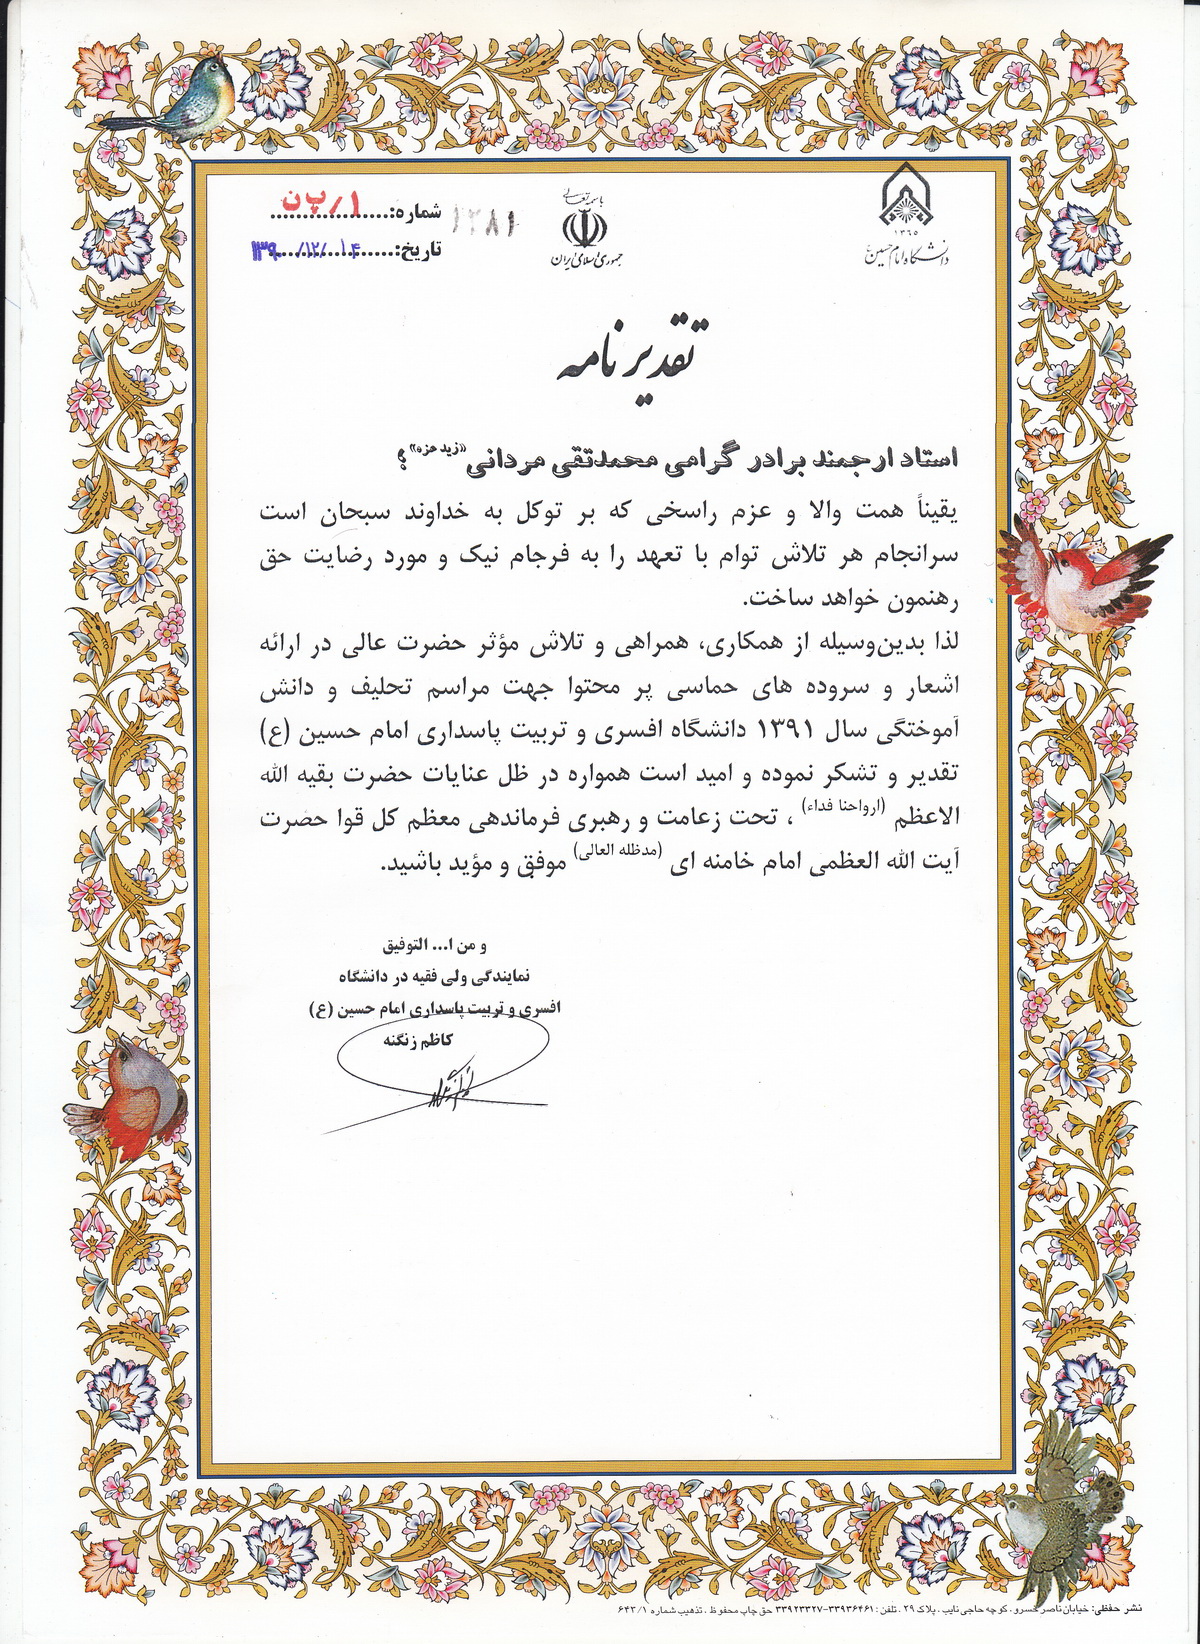 باسمه تعالی
جمهوری اسلامی ایران
۱۳۶۵
دانشگاه امام حسین
شماره: ۱/پ ن ۱۲۸۱
تاریخ: ۱۳۹۰/۱۲/۰۱۴
تقدیر نامه
استاد ارجمند برادر گرامی محمدتقی مردانی «زید عزه» ؛
یقیناً همت والا و عزم راسخی که بر توکل به خداوند سبحان است
سرانجام هر تلاش توام با تعهد را به فرجام نیک و مورد رضایت حق
رهنمون خواهد ساخت.
لذا بدین‌وسیله از همکاری، همراهی و تلاش مؤثر حضرت عالی در ارائه
اشعار و سروده های حماسی پر محتوا جهت مراسم تحلیف و دانش
آموختگی سال ۱۳۹۱ دانشگاه افسری و تربیت پاسداری امام حسین (ع)
تقدیر و تشکر نموده و امید است همواره در ظل عنایات حضرت بقیه الله
الاعظم (ارواحنا فداء) ، تحت زعامت و رهبری فرماندهی معظم کل قوا حضرت
آیت الله العظمی امام خامنه ای (مدظله العالی) موفق و مؤید باشید.
و من ا... التوفیق
نمایندگی ولی فقیه در دانشگاه
افسری و تربیت پاسداری امام حسین (ع)
کاظم زنگنه
نشر حفظی: خیابان ناصر خسرو ، کوچه حاجی نایب ، پلاک ۲۹ ، تلفن : ۳۳۹۳۶۴۶۱-۳۳۹۲۳۳۲۷ حق چاپ محفوظ ، تذهیب شماره ۶۴۳/۱